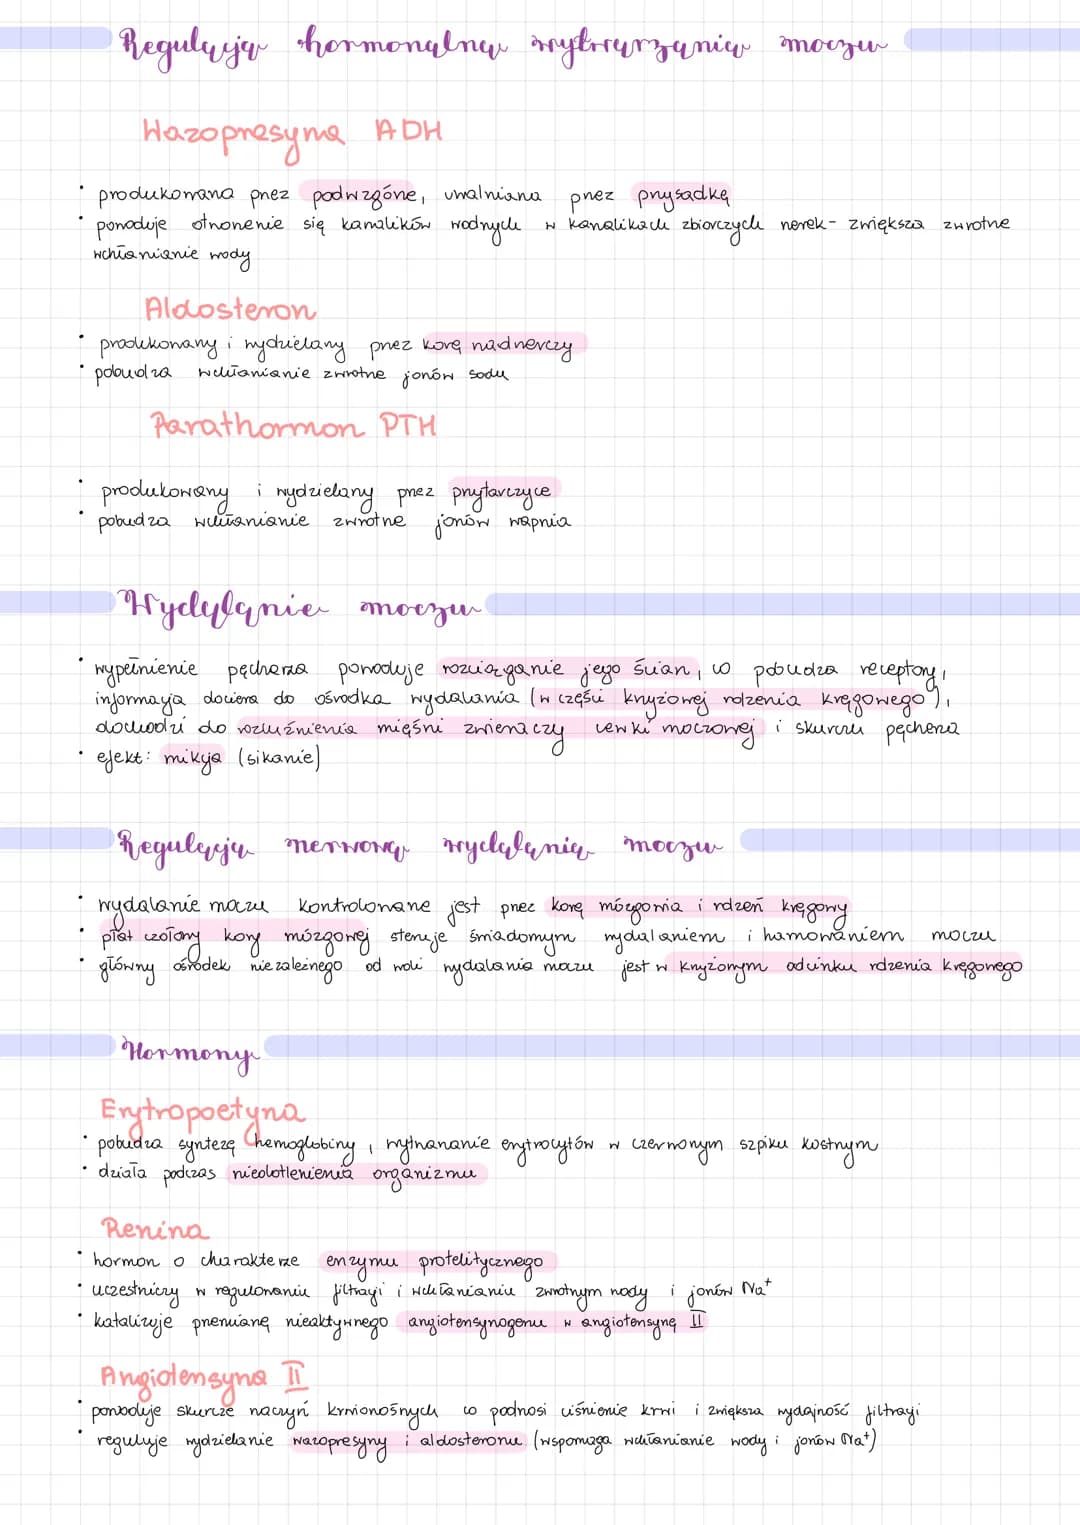 Regulacja hormonalna wytwarzania moczu
Wazopresyna ADH
• produkowana przez podwzgórze, uwalniana przez przysadkę
• powoduje otworzenie się kanalików wodnych w kanalikach zbiorczych nerek - zwiększa zwrotne
wchłanianie wody
Aldosteron
• produkowany i wydzielany przez korę nadnerczy
• pobudza wchłanianie zwrotne jonów sodu
Parathormon PTH
• produkowany i wydzielany przez przytarczyce
• pobudza wchłanianie zwrotne jonów wapnia
Wydalanie moczu
• wypełnienie pęcherza powoduje rozciąganie jego ścian, co pobudza receptory,
informacja dociera do ośrodka wydalania (w części krzyżowej rdzenia kręgowego),
dochodzi do rozluźnienia mięśni zwieraczy cewki moczowej i skurczu pęcherza
• efekt: mikcja (sikanie)
Regulacja nerwowa wydalania moczu
• wydalanie moczu kontrolowane jest przez korę mózgowia i rdzeń kręgowy
• płat czołowy kory mózgowej steruje świadomym wydalaniem i hamowaniem moczu
• główny ośrodek niezależnego od woli wydalania moczu jest w krzyżowym odcinku rdzenia kręgowego
Hormony
Erytropoetyna
• pobudza syntezę hemoglobiny, wytwarzanie erytrocytów w czerwonym szpiku kostnym
• działa podczas niedotlenienia organizmu
Renina
• hormon o charakterze enzymu protelitycznego
• uczestniczy w regulowaniu filtracji i wchłanianiu zwrotnym wody i jonów Na⁺
• katalizuje przemianę nieaktywnego angiotensynogenu w angiotensynę II
Angiotensyna II
• powoduje skurcze naczyń krwionośnych co podnosi ciśnienie krwi i zwiększa wydajność filtracji
• reguluje wydzielanie wazopresyny i aldosteronu (wspomaga wchłanianie wody i jonów Na⁺)